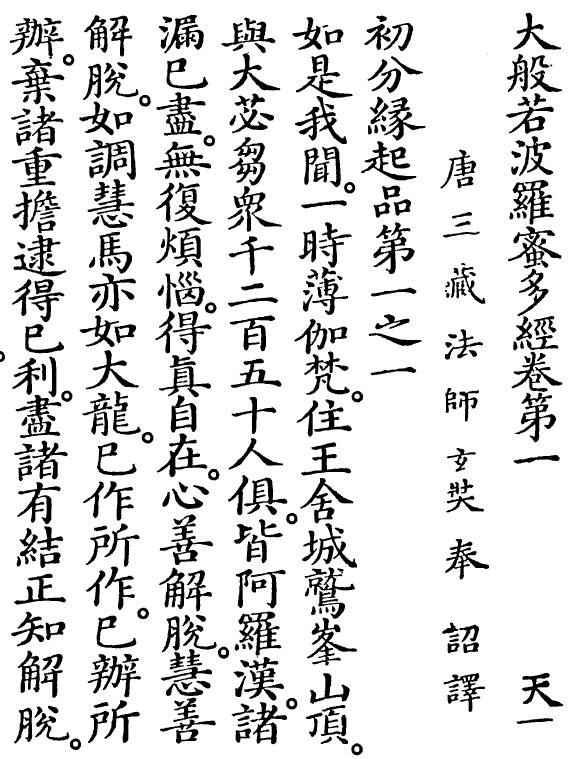 大般若波羅蜜多經卷第一 天一
唐三藏法師玄奘奉 詔譯
初分縁起品第一之一
如是我聞。一時薄伽梵。住王舍城鷲峯山頂。
與大苾芻衆千二百五十人俱。皆阿羅漢。諸
漏巳盡。無復煩惱。得眞自在。心善解脫。慧善
解脫。如調慧馬亦如大龍。巳作所作。巳辦所
辦。棄諸重擔逮得巳利。盡諸有結正知解脫。